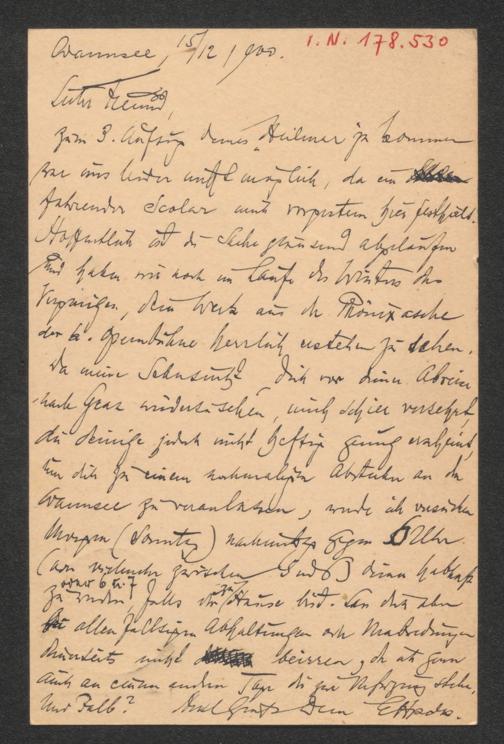 Wannsee, 15/12 1900. I.N. 178.530
Lieber Freund,
Zum 3. Aufzug deines "Heilmar" zu kommen
war uns leider nicht möglich, da ein
fahrender Scolar uns vorgestern hier festhielt.
Hoffentlich ist die Sache glänzend abgelaufen
und haben wir noch im Laufe des Winters das
Vergnügen, dein Werk aus der Phönixasche
der k. Opernbühne herrlich erstehen zu sehen.
Da meine Sehnsucht, dich vor deiner Abreise
nach Graz wiederzusehen, mich schier verzehrt,
die deinige jedoch nicht heftig genug erscheint,
um dich zu einem nochmaligen Abstecher an den
Wannsee zu veranlassen, werde ich versuchen
Morgen (Sonntag) nachmittags gegen 6 Uhr
(oder vielmehr zwischen 5 und 6) deiner habhaft
oder 6 u. 7
zu werden, falls du zu Hause bist. Lass dich aber
bei allenfallsigen Abhaltungen oder Verabredungen
deinerseits nicht beirren, da ich gern
auch an einem andern Tage dir zur Verfügung stehe.
Und Falb? Gruß Dein